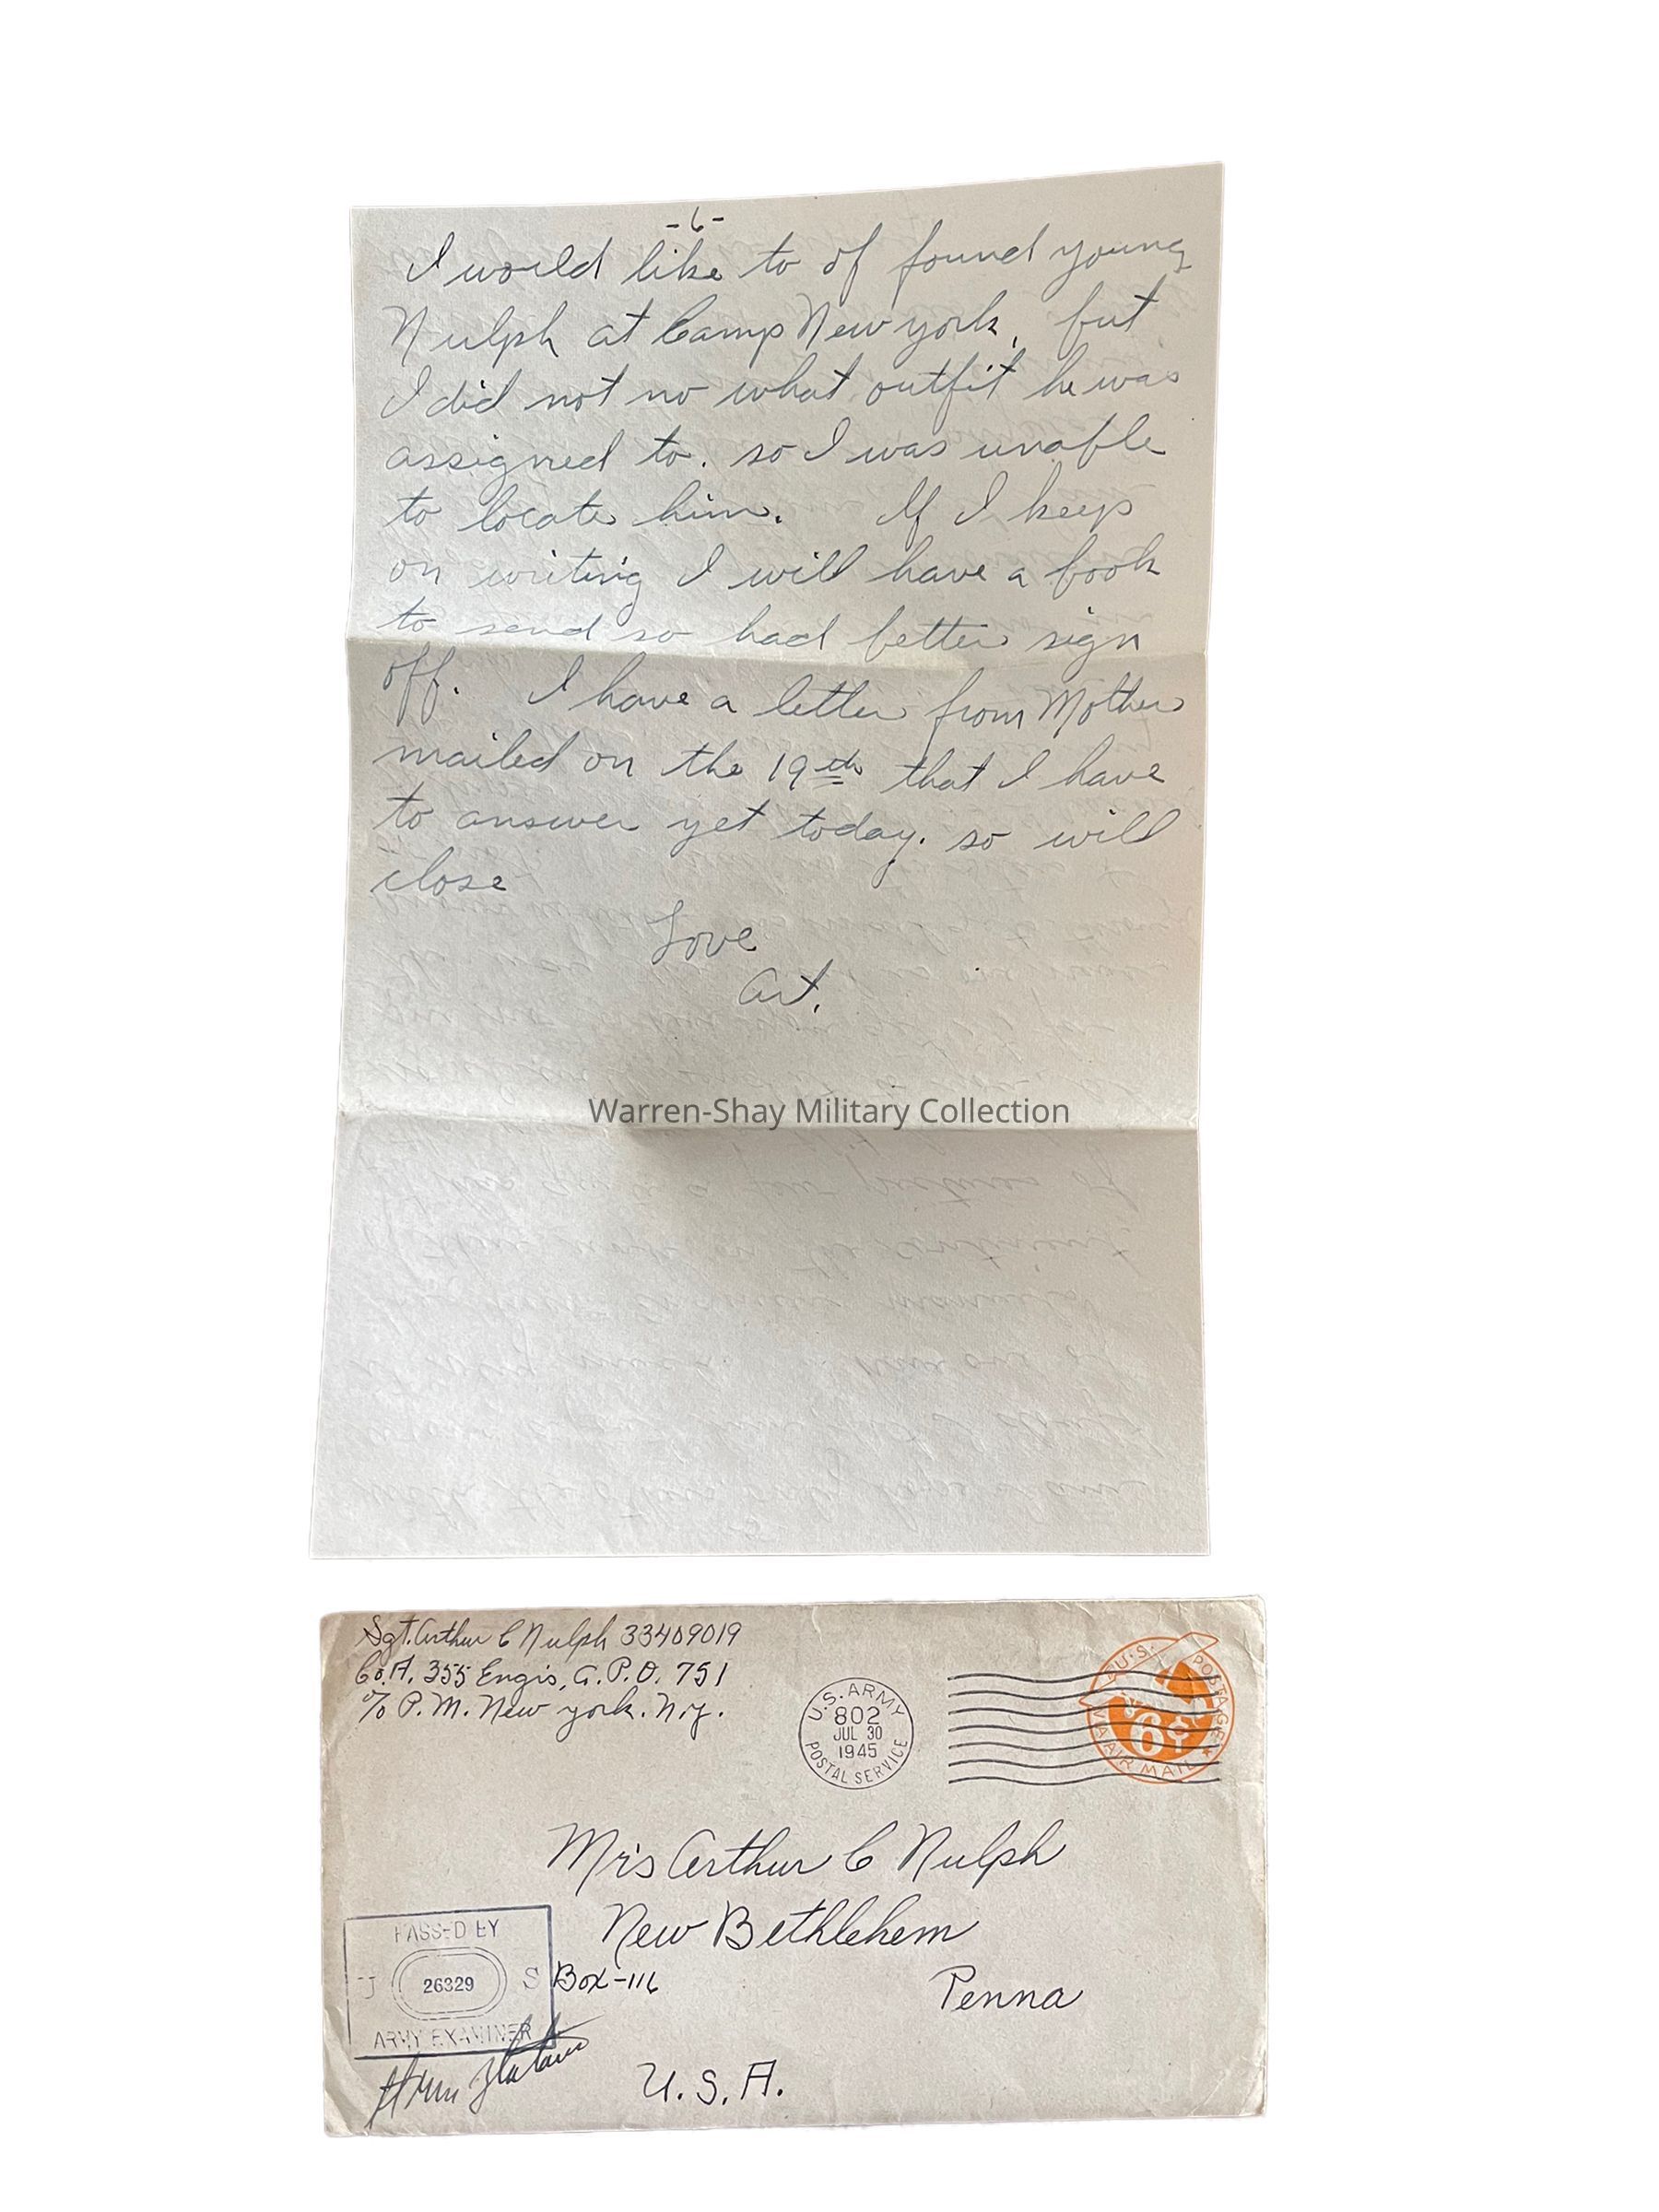 -6-
I would like to of found young
Nulph at Camp New york, but
I did not no what outfit he was
assigned to. so I was unable
to locate him. If I keep
on writing I will have a book
to send so had better sign
off. I have a letter from Mother
mailed on the 19th that I have
to answer yet today. so will
close
Love
Art.
Warren-Shay Military Collection
Sgt. Arthur C Nulph 33409019
Co. A. 355 Engrs, A.P.O. 751
c/o P.M. New york. N.y.
U.S. ARMY
802
JUL 30
1945
POSTAL SERVICE
U.S. POSTAGE
6¢
VIA AIR MAIL
Mrs Arthur C Nulph
New Bethlehem
Box-116
Penna
U.S.A.
PASSED BY
U 26329 S
ARMY EXAMINER